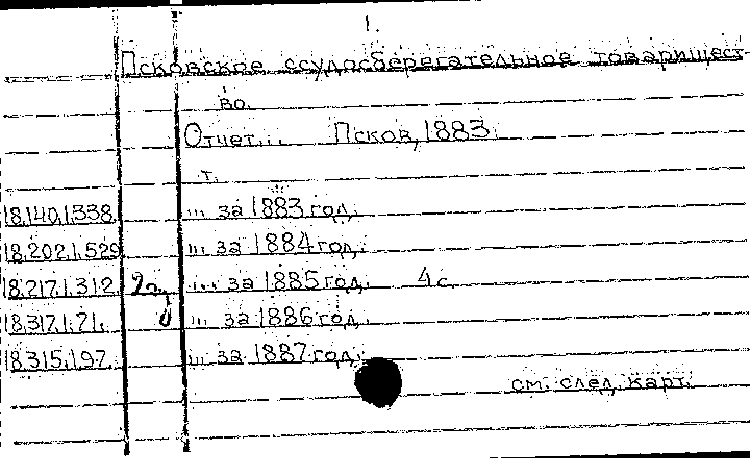 1.
Псковское ссудосберегательное товарищест-
во.
Отчет... Псков, 1883
т.
18.140.1.338. ... за 1883 год.
18.202.1.529 ... за 1884 год.
18.217.1.312 ... за 1885 год. 4 с.
18.317.1.71. ... за 1886 год.
18.315.1.97. ... за 1887 год.
см. след. карт.